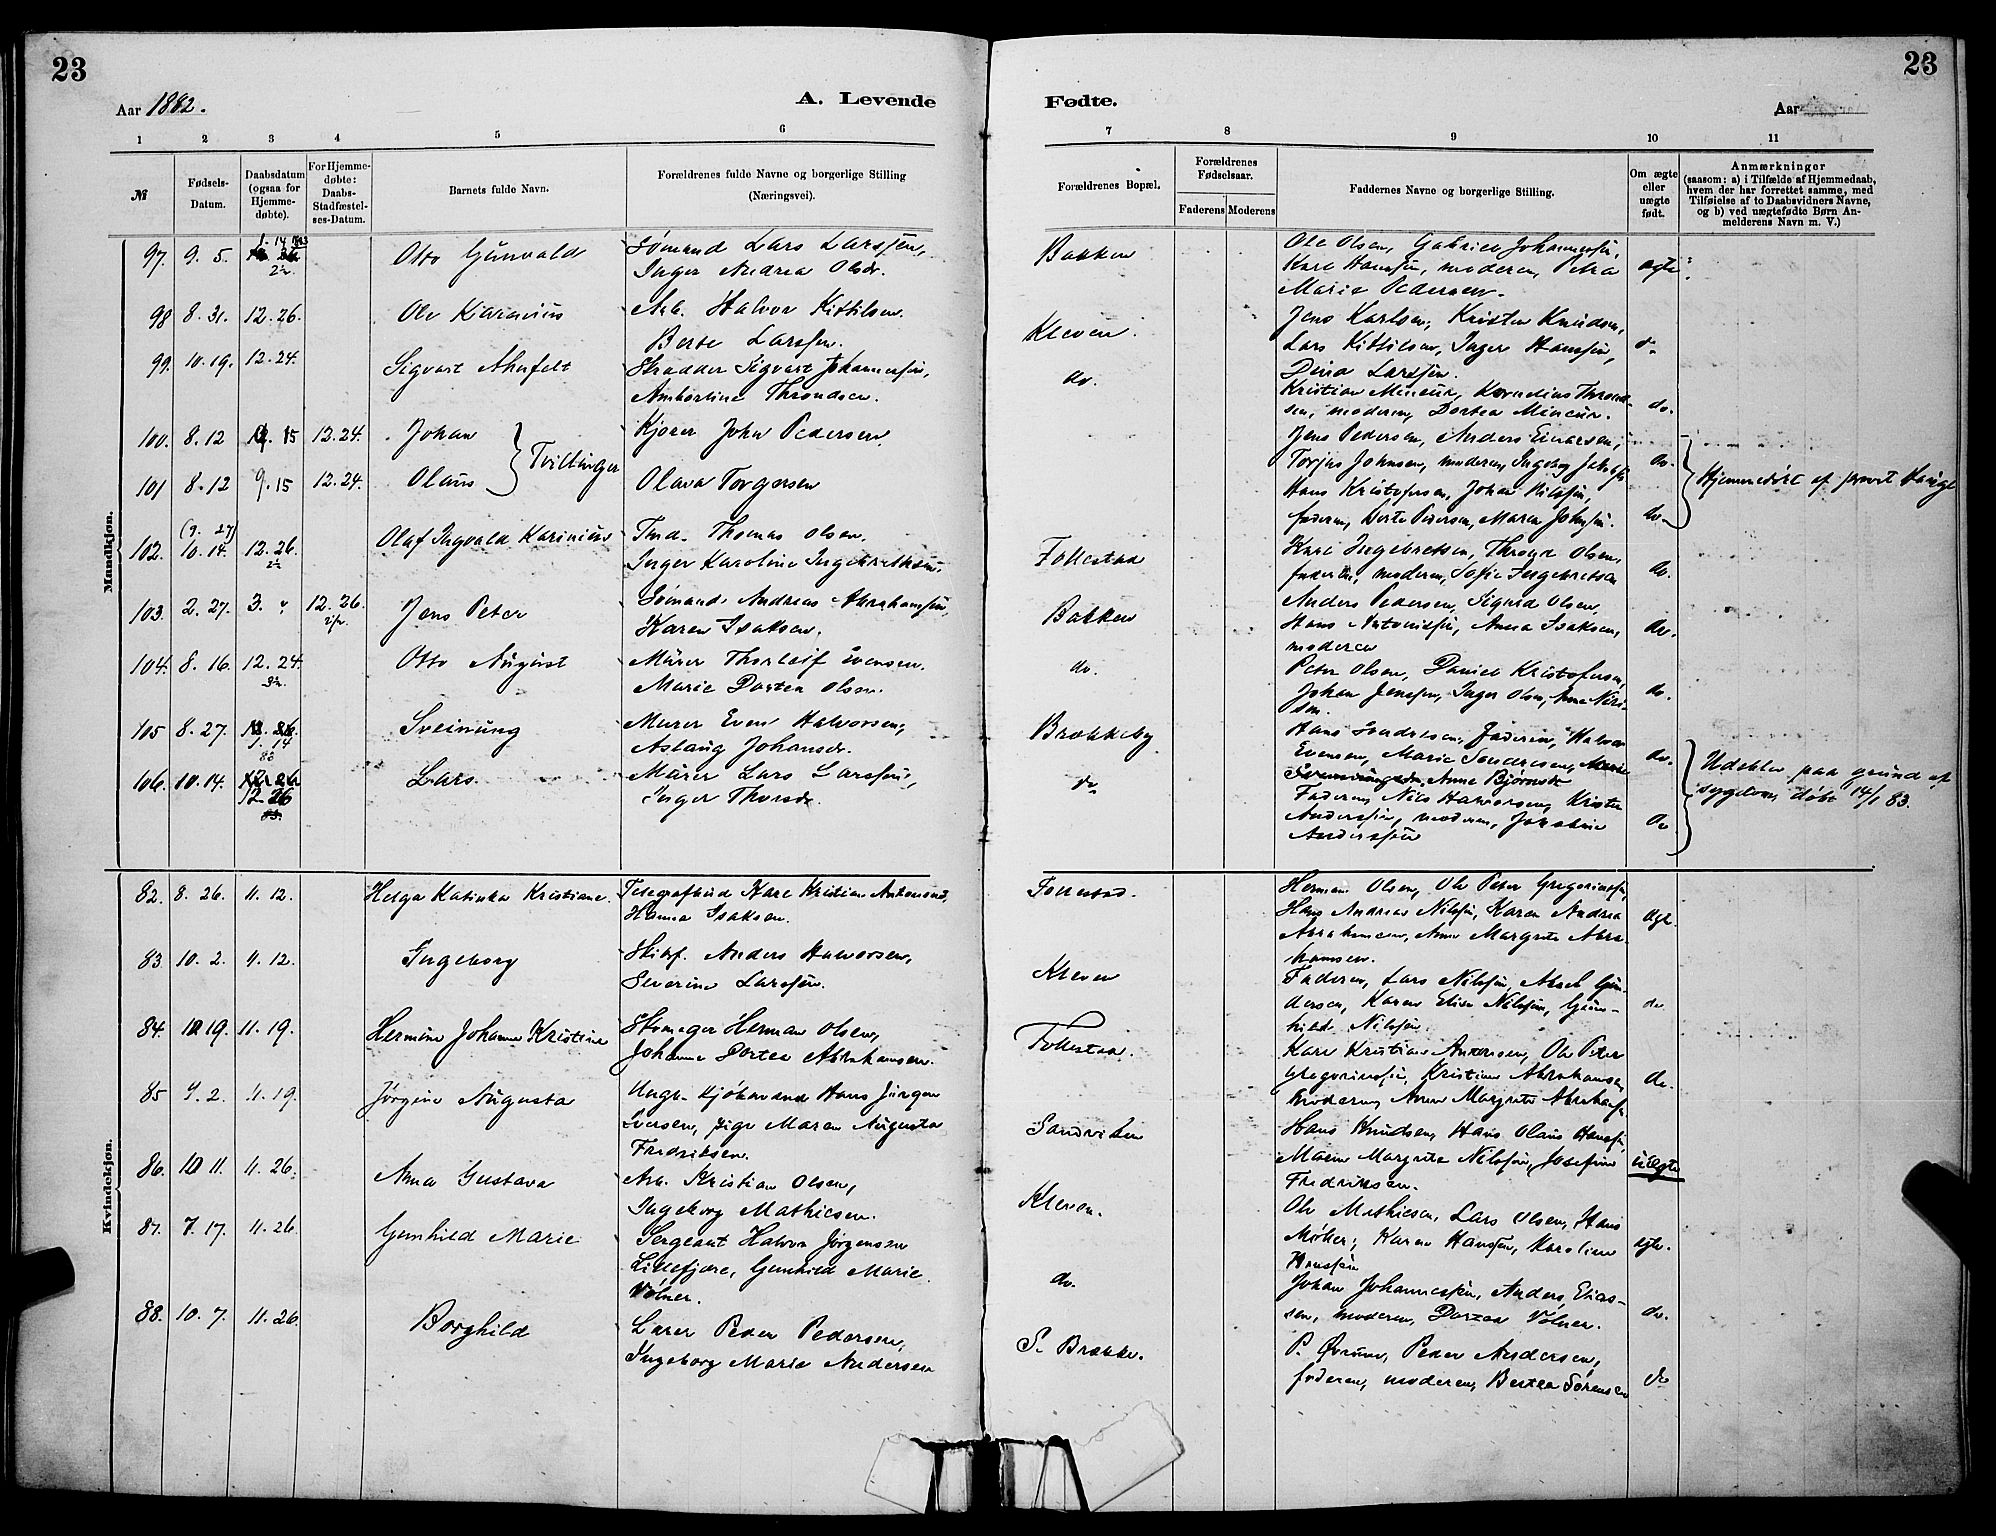 23
23
Aar 1882.
A. Levende
Fødte.
Aar
1 2 3 4 5 6
7 8 9 10 11
№
Fødsels-Datum.
Daabsdatum (ogsaa for Hjemmedøbte).
For Hjemmedøbte: Daabs-Stadfæstelses-Datum.
Barnets fulde Navn.
Forældrenes fulde Navne og borgerlige Stilling (Næringsvei).
Forældrenes Bopæl.
Forældrenes Fødselsaar.
Faderens Moderens
Faddernes Navne og borgerlige Stilling.
Om ægte eller uægte født.
Anmærkninger
(saasom: a) i Tilfælde af Hjemmedaab, hvem der har forrettet samme, med Tilføielse af to Daabsvidners Navne, og b) ved uægtefødte Børn Anmelderens Navn m. V.)
Mandkjøn.
97. 9. 5. 1. 14 Otto Gunvald Sømand Lars Larssen, Bakken Ole Olsen, Gabriel Johannessen, ægte
Inger Andrea Olsdr. Karl Hanssen, moderen, Petra
Marie Pedersen.
98 8. 31. 12. 26. Ole Karinius Arb. Halvor Kittilsen. Kleven. Jens Karlsen, Kristen Knudsen,
Berte Larssen. Lars Kittilsen, Inger Hanssen,
Dina Larssen.
99. 10. 19. 12. 24. Sigvart Ahnfelt Skrædder Sigvart Johannessen, do. Kristian Mineur, Kornelius Thrond-
Amborline Throndsen. sen, moderen, Dortea Mineur. do.
100. 8. 12 9. 15 12. 24. Johan Tvillinger Kjører John Pedersen Jens Pedersen, Anders Einarsen,
Torjus Johnsen, moderen, Ingeborg do. Hjemmedøbt af provst Hauge
101 8. 12 9. 15 12. 24. Olaus Olava Torgersen Hans Kristofersen, Johan Nilssen,
faderen, Berte Pedersen, Maren Johnsen. do.
102. (9. 27) 10. 14. 12. 26. Olaf Ingvald Karinius Tmd. Thomas Olsen, Follestad Karl Ingebretsen, Thrond Olsen,
Inger Karoline Ingebrethsen. faderen, moderen, Sofie Ingebretsen do.
103. 2. 27. 3. " 12. 26. Jens Peter Sømand Andreas Abrahamsen, Bakken Anders Pedersen, Sigurd Olsen,
Karen Isaksen. Hans Antonissen, Anna Isaksen, do.
moderen
104. 8. 16. 12. 24. Otto August Murer Thorleif Evensen. do. Peter Olsen, Daniel Kristofersen,
Marie Dortea Olsen. Johan Jenssen, Inger Olsen, Anne Niri- do.
sen.
105 8. 27. 1. 14 83 Sveinung Murer Even Halvorsen, Brækkeby Hans Sondresen, Faderen, Halvor
Aslaug Johansdr. Evensen, Marie Sondresen, do. Udeblev paa grund af
Anne Bjørnsdr sygdom, døbt 14/1 83.
106. 10. 14. 12. 26 Lars. Murer Lars Larssen, do Faderen, Nils Halvorsen, Kristen
Inger Thorsdr. Anderssen, moderen, Josefine do
Anderssen
Kvindekjøn.
82. 8. 26. 11. 12. Helga Katinka Kristiane. Telegrafbud Karl Kristian Antonsen, Follestad. Herman Olsen, Ole Peter Gregoriussen,
Hanna Isaksen. Hans Andreas Nilssen, Karen Andrea ægte
Abrahamsen, Anne Margrete Abra-
hamsen.
83. 10. 2. 11. 12. Ingeborg Skibsf. Anders Halvorsen, Kleven Faderen, Lars Nilssen, Abel Gun-
Severine Larssen. dersen, Karen Elise Nilssen, Gun- do
hilde Nilssen.
84. 10 19. 11. 19. Hermine Johanne Kristine Skomager Herman Olsen, Follestad. Karl Kristian Antonsen, Ole Peter
Johanne Dortea Abrahamsen. Gregoriussen, Kristiane Abrahamsen do.
moderen, Anne Margrete Abrahams.
85 9. 2. 11. 19. Jørgine Augusta Ungk. Sjømand Hans Jürgen Sandviken Hans Knudsen, Hans Olaus Hanssen,
Iversen, pige Maren Augusta Maren Margrete Nilssen, Josefine uægte
Fredriksen. Fredriksen.
86. 10 11. 11. 26. Anna Gustava Arb. Kristian Olsen, Kleven. Ole Mathiesen, Lars Olsen, Hans
Ingeborg Mathiesen. Møller, Karen Hanssen, Karoline ægte.
Hanssen
87. 7. 17. 11. 26. Gunhild Marie Sergeant Halvor Jørgensen do. Johan Johannessen, Anders Elias-
Lillefjære, Gunhild Marie sen, moderen, Dortea Völner. do.
Völner.
88. 10. 7. 11. 26. Borghild Lærer Peder Pedersen, S. Brække. P. Øvrum, Peder Andersen,
Ingeborg Marie Andersen faderen, moderen, Bertea Sørensen do